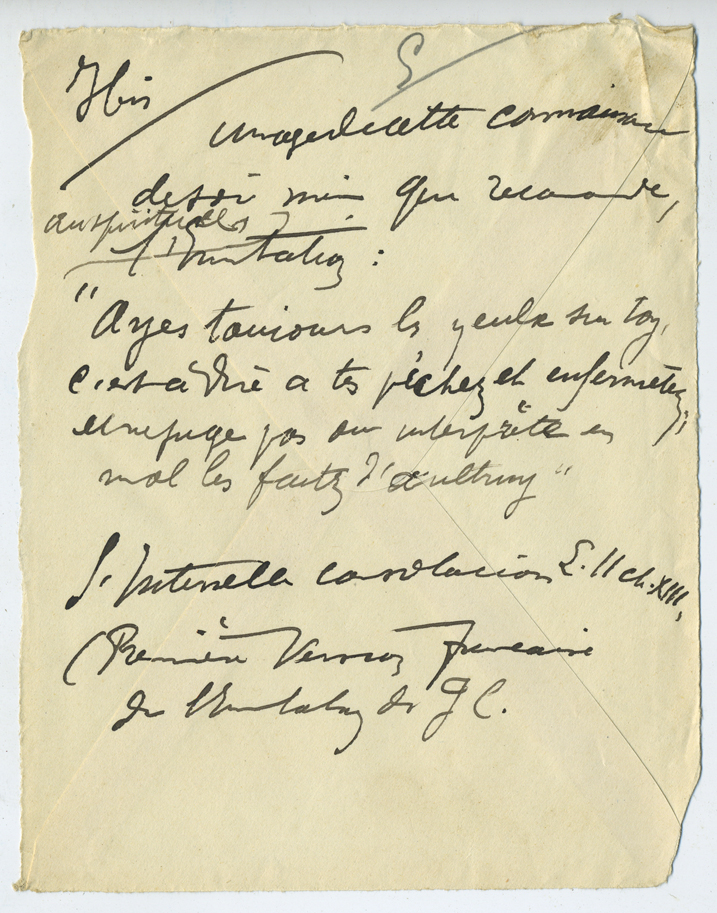 cette connaissance
de soi même que recommande,
aux spirituels
l'Imitation :
"Ayes toujours les yeulx sur toy,
c'est à dire a tes péchez et enfermetez,
et ne juge pas ou interprète en
mal les faitz d'aultruy"
L'Internelle consolacion L. II ch. XIII,
(Première Version française
de l'Imitation de J C.